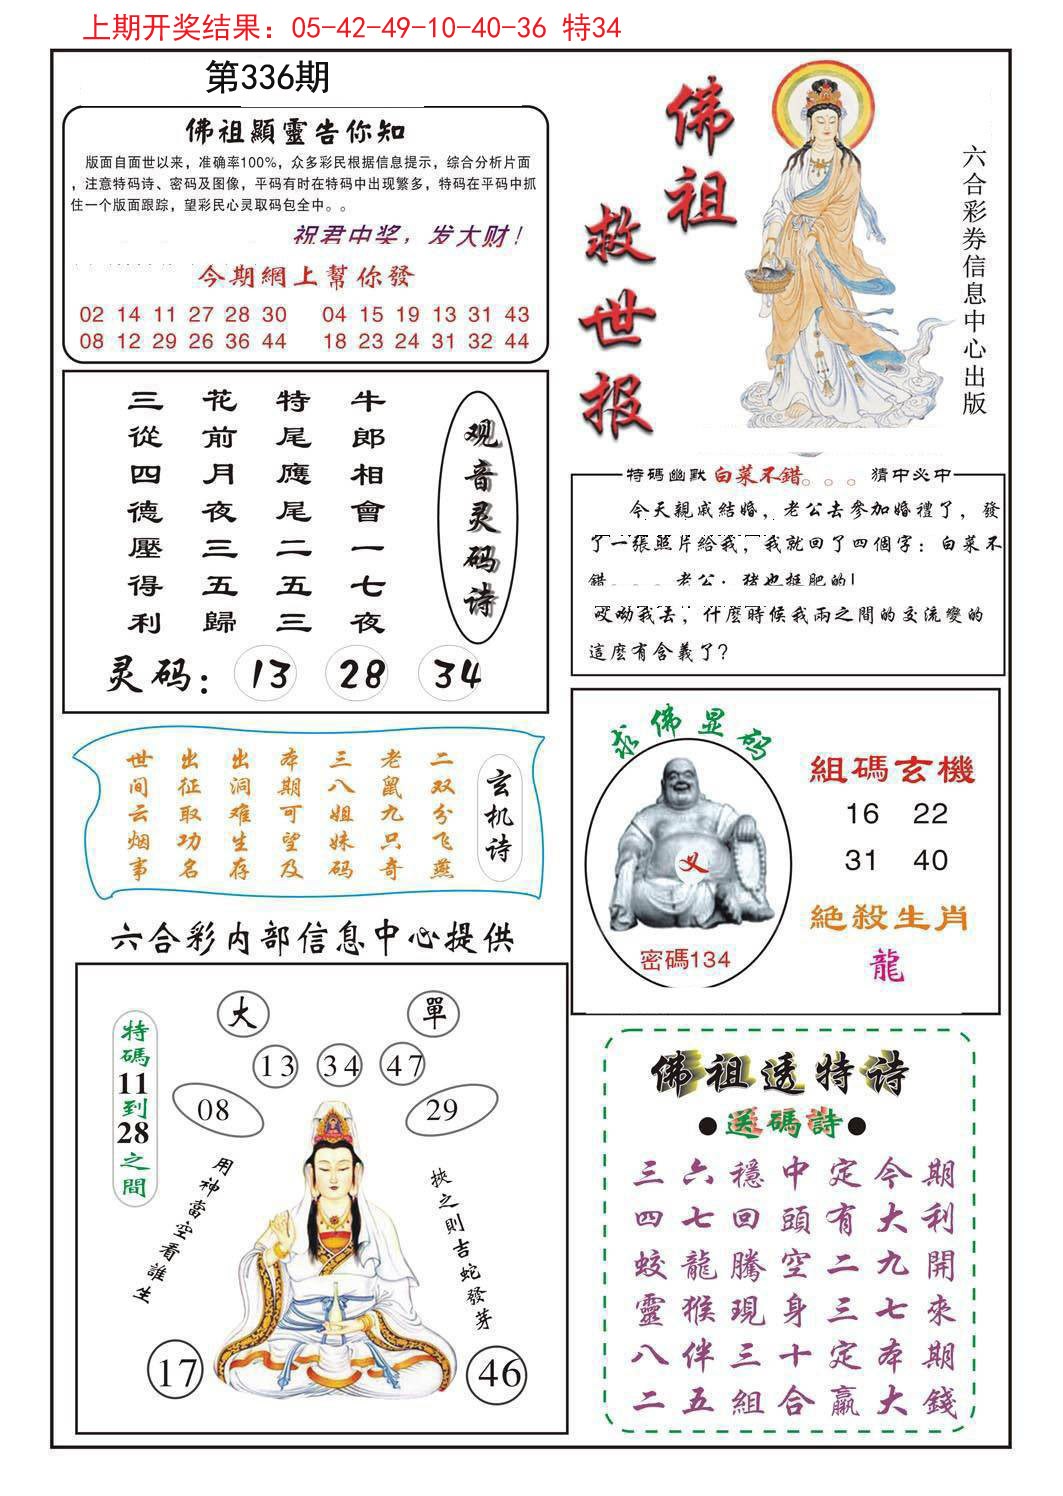 上期开奖结果：05-42-49-10-40-36 特34
第336期
佛祖顯靈告你知
版面自面世以来，准确率100%，众多彩民根据信息提示，综合分析片面
，注意特码诗、密码及图像，平码有时在特码中出现繁多，特码在平码中抓
住一个版面跟踪，望彩民心灵取码包全中。。
祝君中奖，发大财！
今期網上幫你發
02 14 11 27 28 30 04 15 19 13 31 43
08 12 29 26 36 44 18 23 24 31 32 44
佛祖
救世报
六合彩券信息中心出版
观音灵码诗
牛郎相會一七夜
特尾應尾二五三
花前月夜三五歸
三從四德壓得利
灵码：13 28 34
特碼幽默 白菜不错。。。 猜中必中
今天親戚結婚，老公去參加婚禮了，發
了一張照片給我，我就回了四個字：白菜不
錯。。。老公：豬也挺肥的！
哎呦我去，什麽時候我兩之間的交流變的
這麽有含義了？
玄机诗
二双分飞燕
老鼠九只奇
三八姐妹码
本期可望及
出洞难生存
出征取功名
世间云烟事
求佛显码
义
密碼134
組碼玄機
16 22
31 40
絕殺生肖
龍
六合彩内部信息中心提供
大 單
13 34 47
08 29
特碼11到28之間
用神當空看誰生
挾之則吉蛇發芽
17 46
佛祖透特诗
●送碼詩●
三六穩中定今期
四七回頭有大利
蛟龍騰空二九開
靈猴現身三七來
八伴三十定本期
二五組合贏大錢